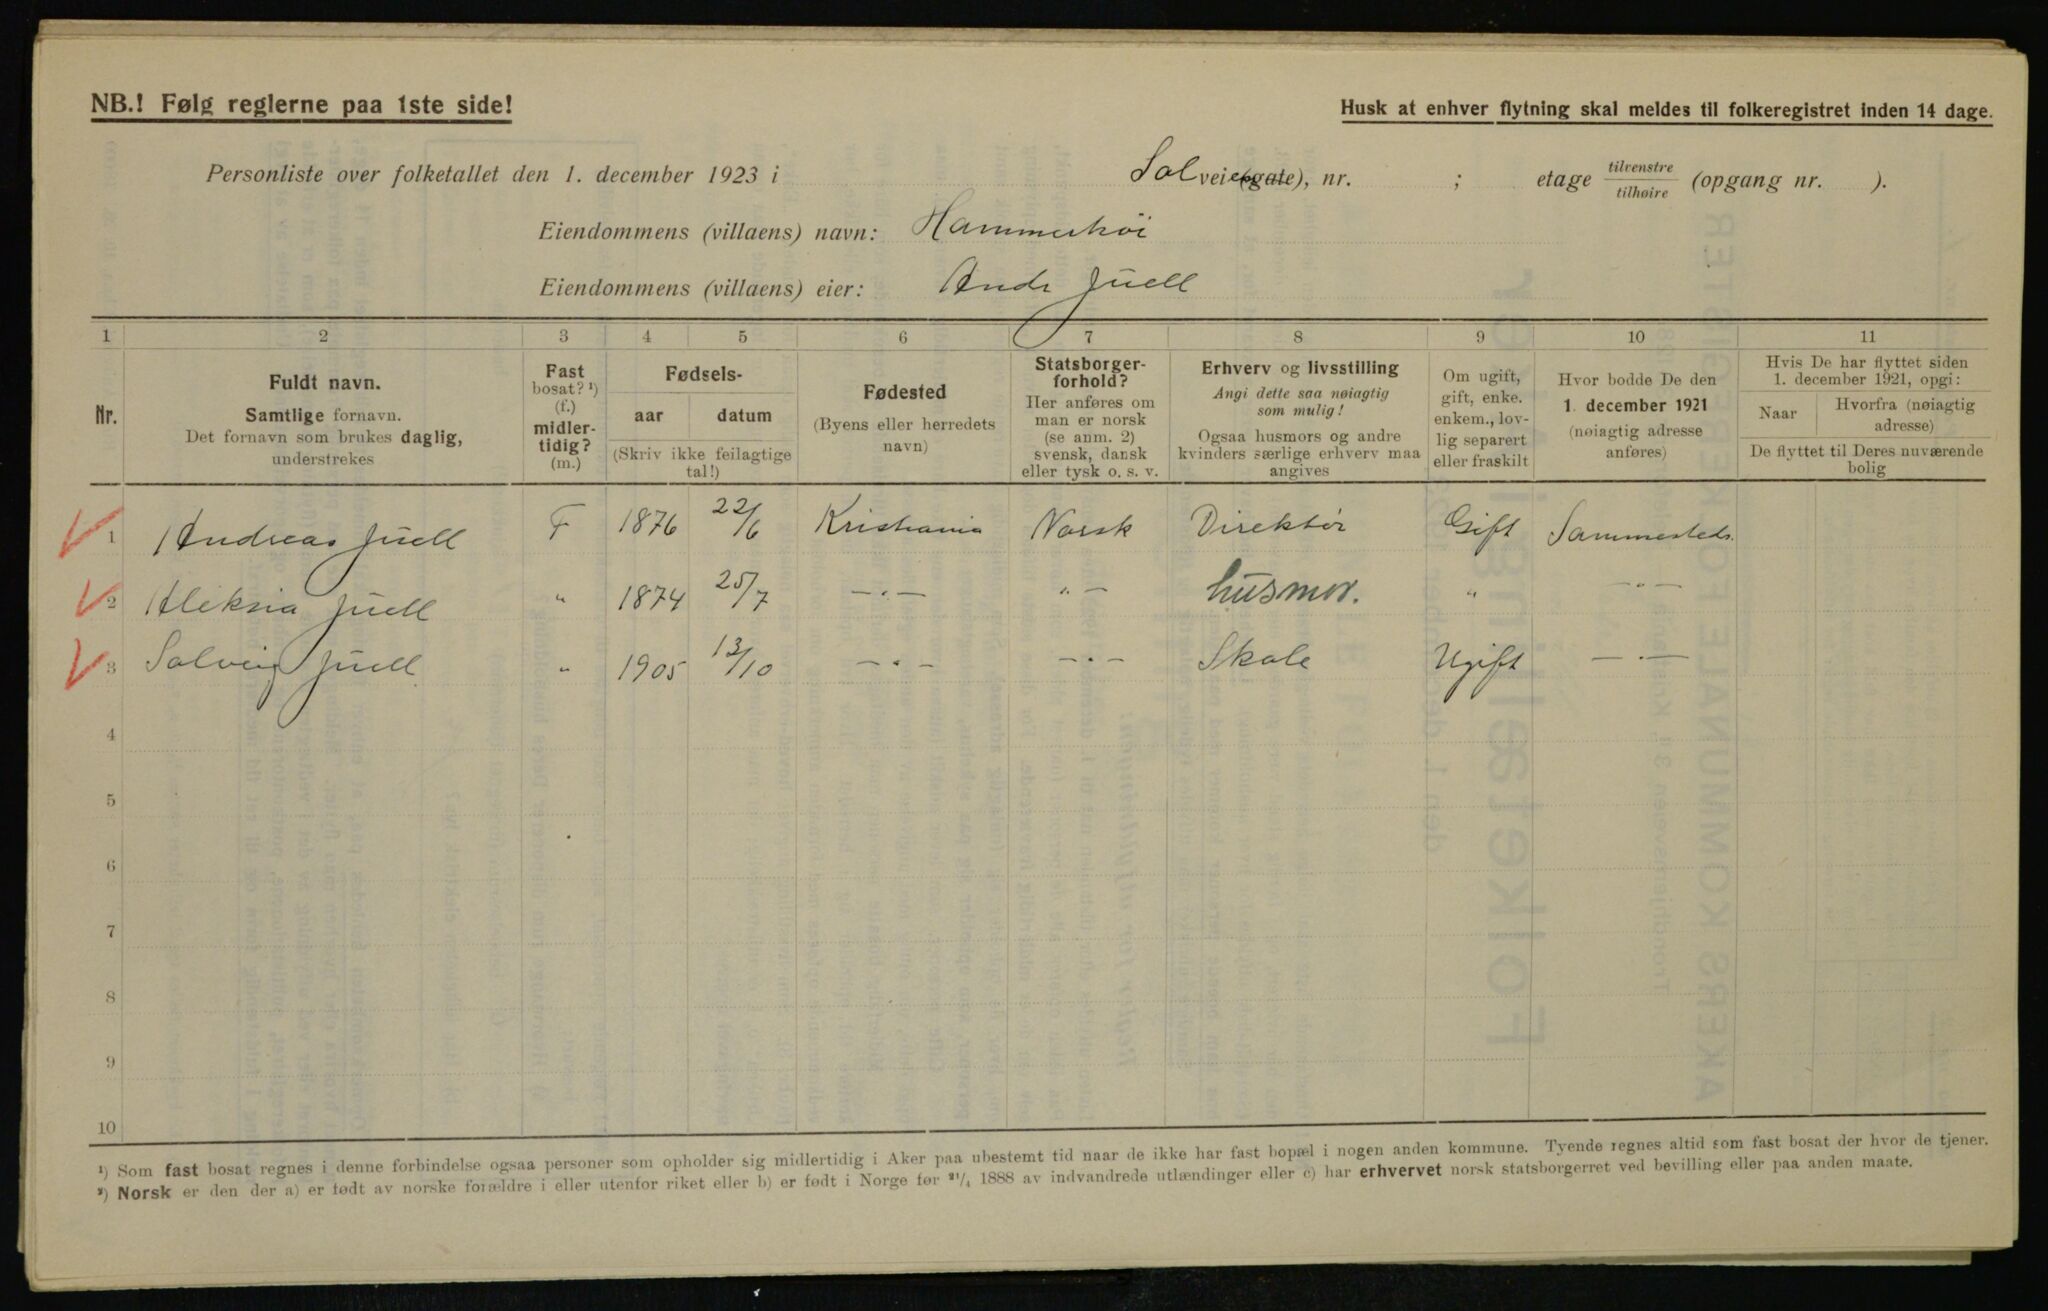 NB.! Følg reglerne paa 1ste side!
Husk at enhver flytning skal meldes til folkeregistret inden 14 dage.
Personliste over folketallet den 1. december 1923 i Solveien (gate), nr. ; etage tilvenstre tilhøire (opgang nr. ).
Eiendommens (villaens) navn: Hammerhöi
Eiendommens (villaens) eier: Andr Juell
1 2 3 4 5 6 7 8 9 10 11
Nr.
Fuldt navn.
Samtlige fornavn.
Det fornavn som brukes daglig,
understrekes
Fast
bosat? ¹)
(f.)
midler-
tidig?
(m.)
Fødsels-
aar datum
(Skriv ikke feilagtige
tal!)
Fødested
(Byens eller herredets
navn)
Statsborger-
forhold?
Her anføres om
man er norsk
(se anm. 2)
svensk, dansk
eller tysk o. s. v.
Erhverv og livsstilling
Angi dette saa nøiagtig
som mulig!
Ogsaa husmors og andre
kvinders særlige erhverv maa
angives
Om ugift,
gift, enke.
enkem., lov-
lig separert
eller fraskilt
Hvor bodde De den
1. december 1921
(nøiagtig adresse
anføres)
Hvis De har flyttet siden
1. december 1921, opgi:
Naar
Hvorfra (nøiagtig
adresse)
De flyttet til Deres nuværende
bolig
1 Andreas Juell F 1876 22/6 Kristiania Norsk Direktør Gift Sammesteds.
2 Aleksia Juell " 1874 25/7 —„— „— husmor. " —„—
3 Solveig Juell " 1905 13/10 —„— —„— Skole Ugift —„—
4
5
6
7
8
9
10
¹) Som fast bosat regnes i denne forbindelse ogsaa personer som opholder sig midlertidig i Aker paa ubestemt tid naar de ikke har fast bopæl i nogen anden kommune. Tyende regnes altid som fast bosat der hvor de tjener.
²) Norsk er den der a) er født av norske forældre i eller utenfor riket eller b) er født i Norge før ²¹/₄ 1888 av indvandrede utlændinger eller c) har erhvervet norsk statsborgerret ved bevilling eller paa anden maate.